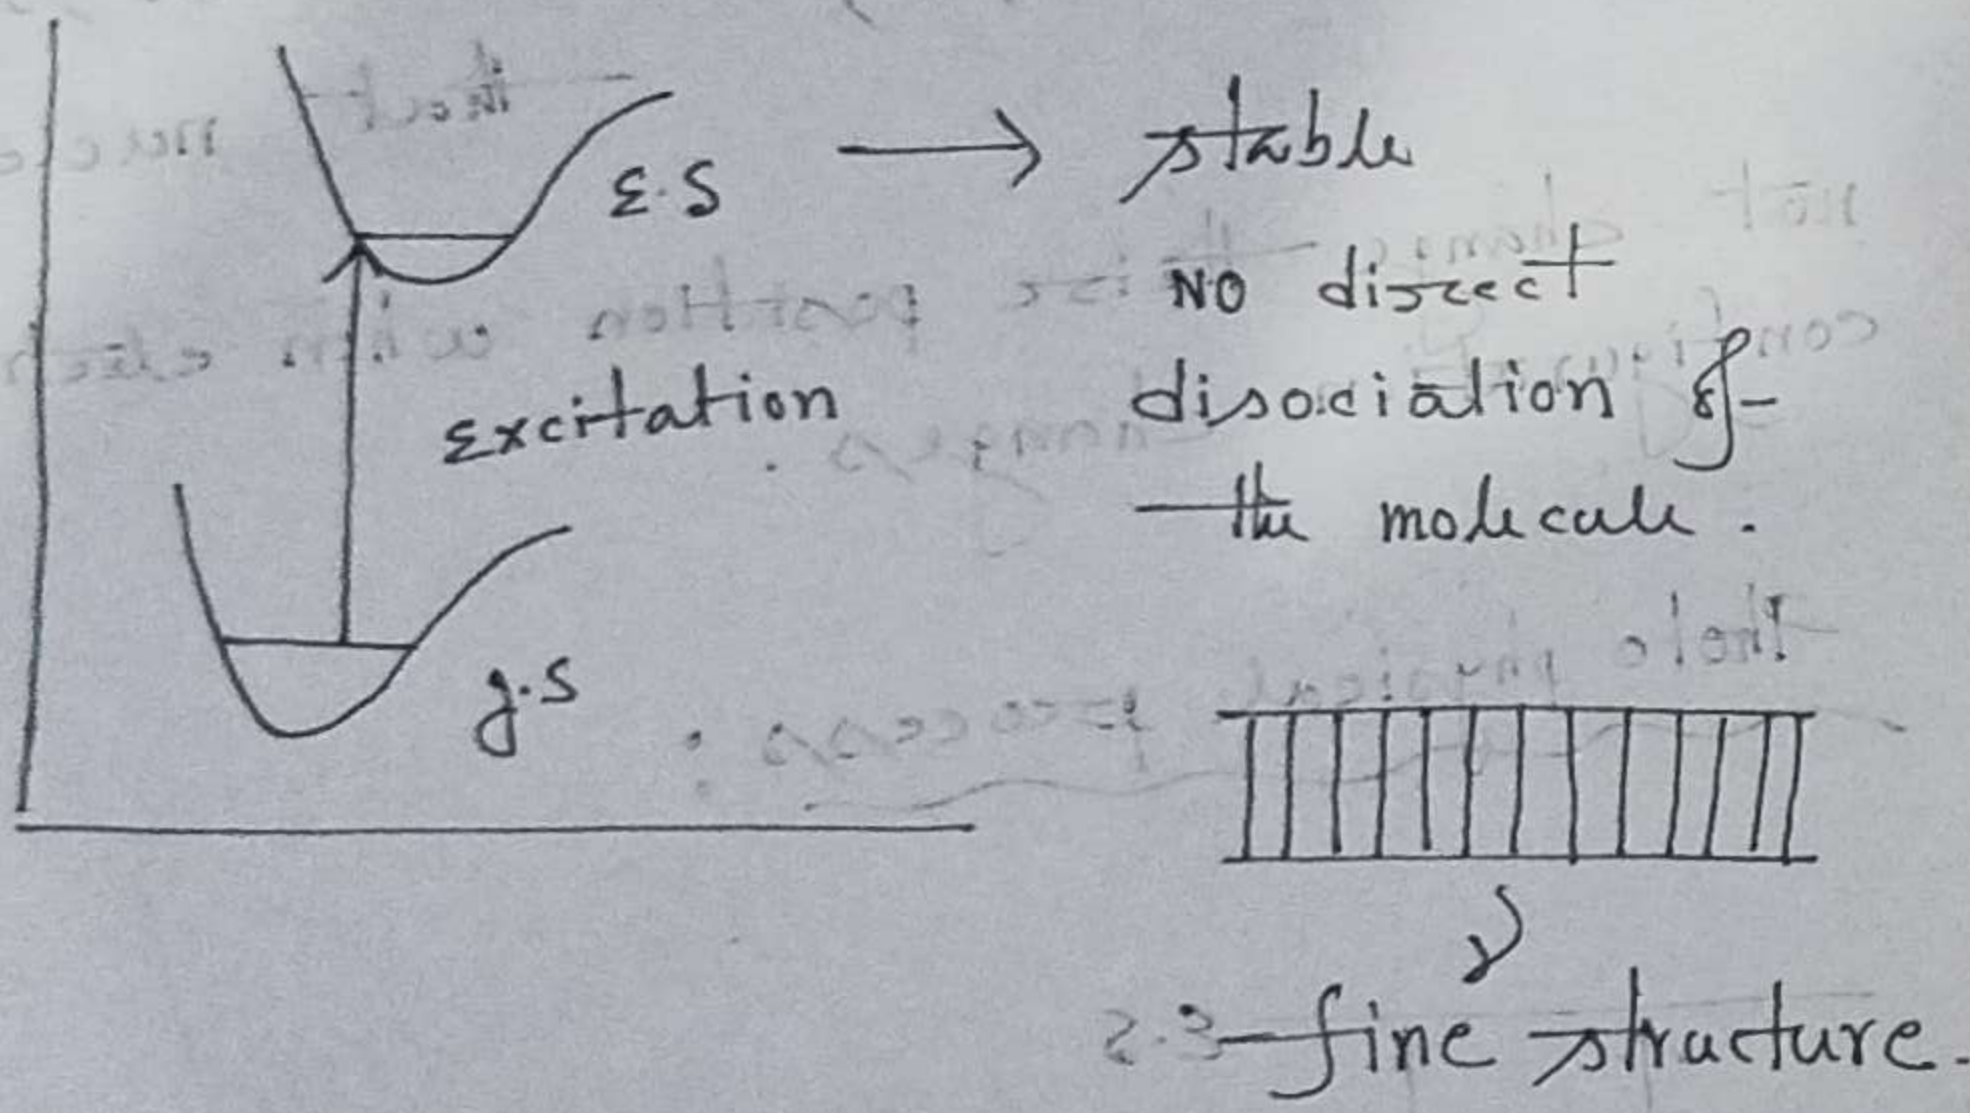 E.S → stable
NO direct
disociation of
the molecule.
Excitation
g.s
fine structure.